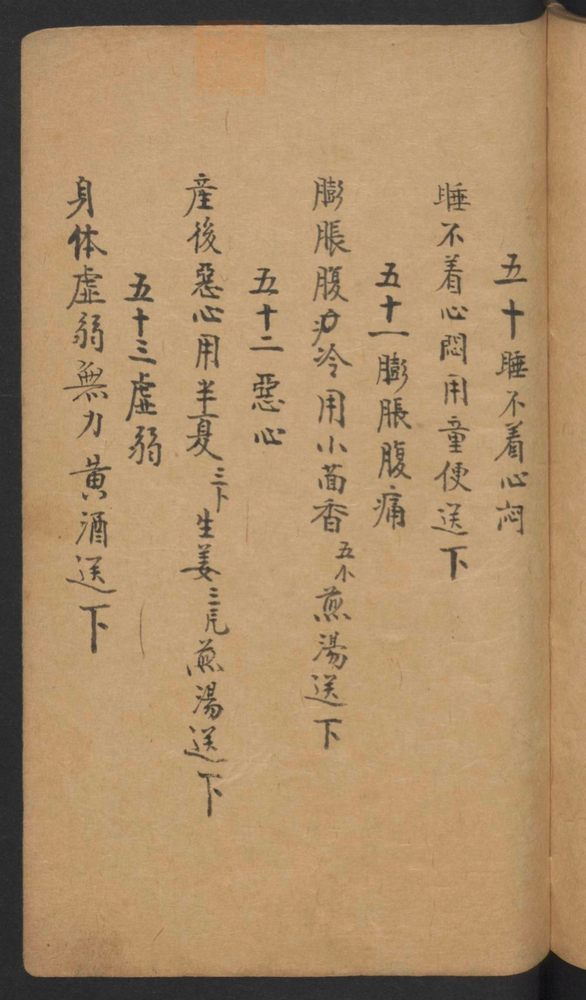 五十睡不着心闷
睡不着心悶用童便送下
五十一膨脹腹痛
膨脹腹冷用小茴香煎湯送下
五十二惡心
產後惡心用半夏三下生姜三煎湯送下
五十三虚弱
身体虚弱無力黄酒送下